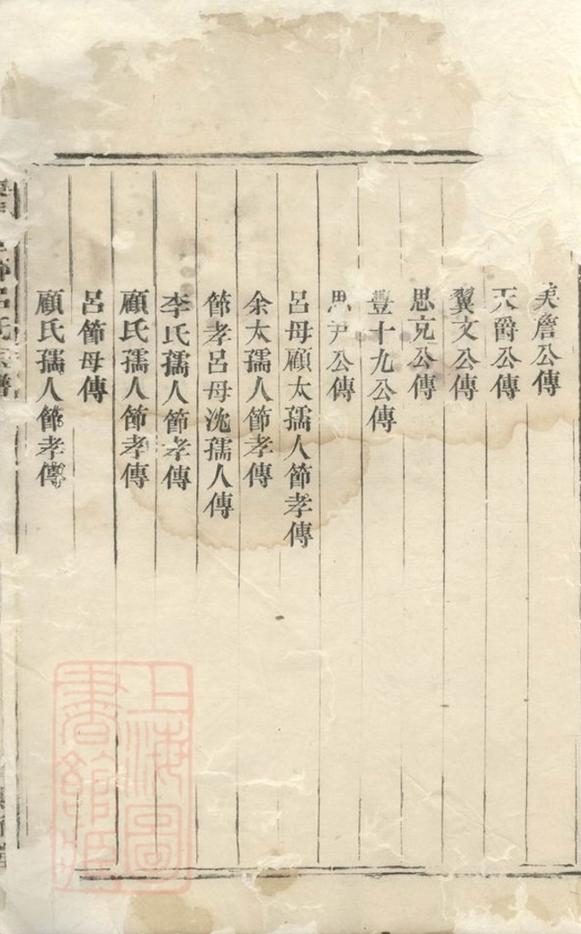 美詹公傳
天爵公傳
翼文公傳
思克公傳
豐十九公傳
思尹公傳
呂母顧太孺人節孝傳
余太孺人節孝傳
節孝呂母沈孺人傳
李氏孺人節孝傳
顧氏孺人節孝傳
呂節母傳
顧氏孺人節孝傳
呂氏宗譜
上海圖
書館